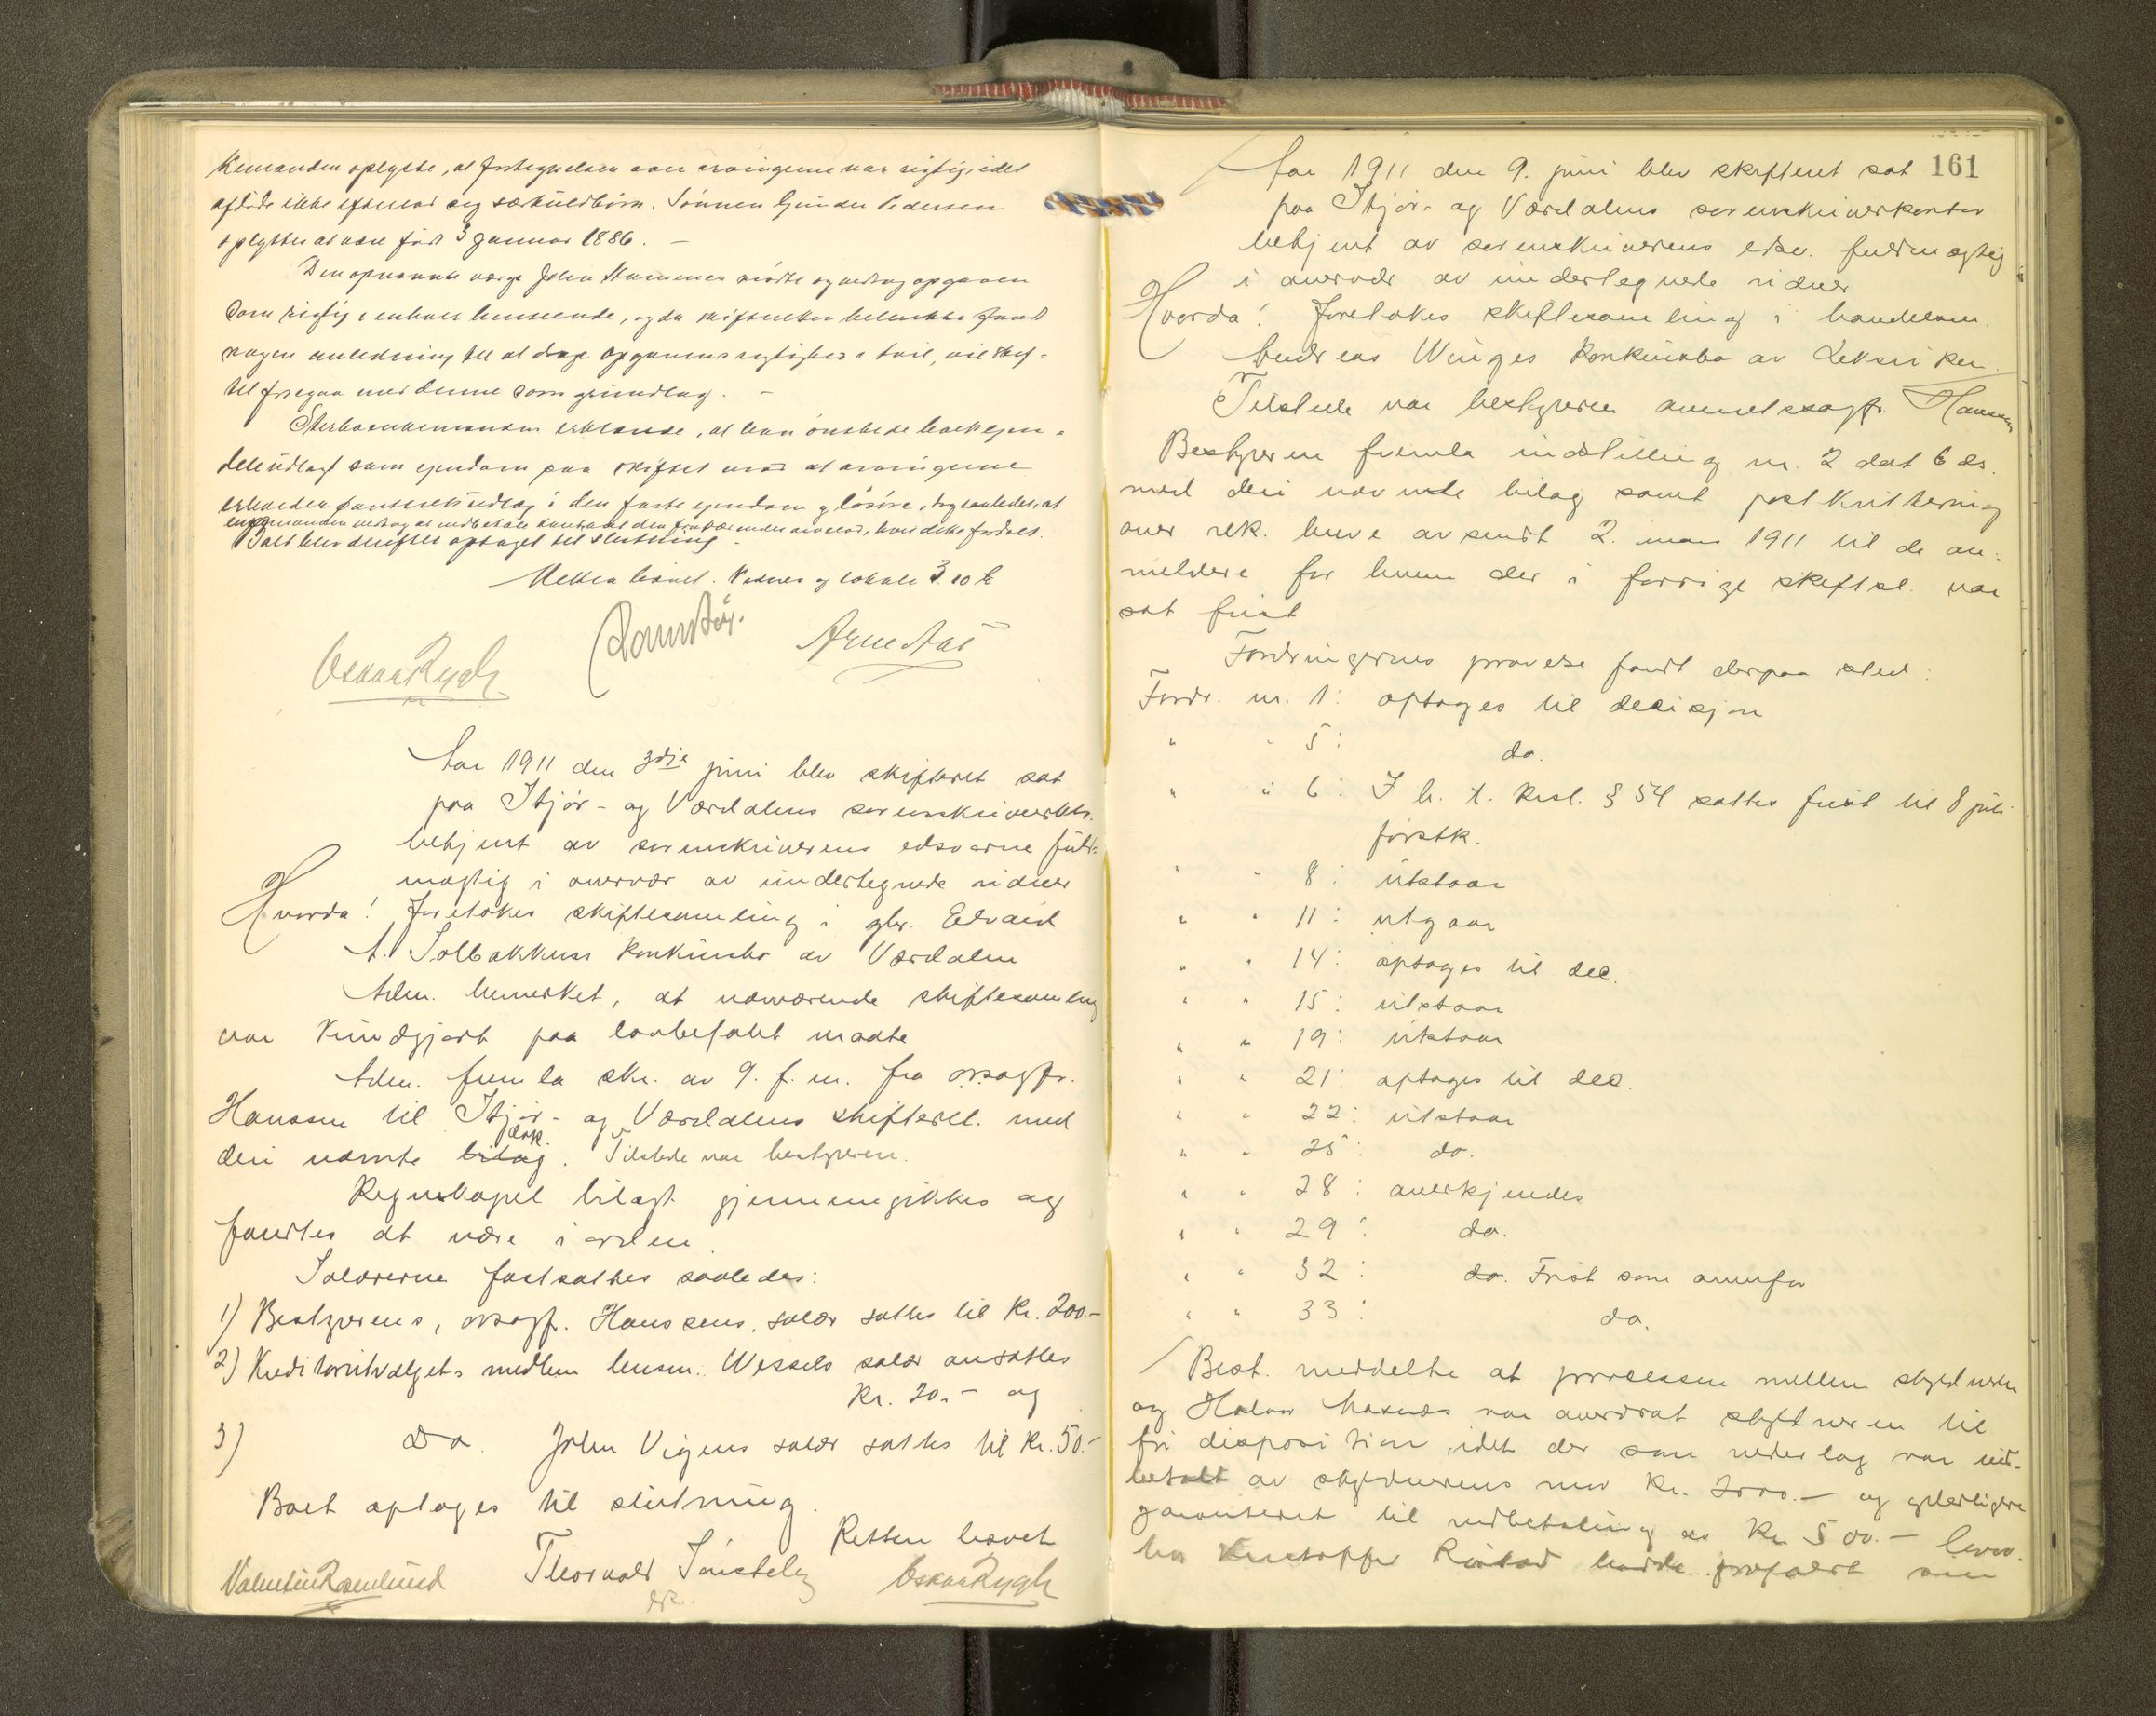 Kemanden oplyste, at fortegnelsen over arvingerne var rigtig, idet
afdøde ikke efterlod sig særkuldbørn. Sønnen Gunder Pedersen
oplystes at være født 3 januar 1886. –
Den opnævnte værge John Stammer mødte og vedtog opgaven
som rigtig i enhver henseende, og da skifteretten heller ikke fandt
nogen anledning til at drage opgavens rigtighed i tvil, vil skif-
tet foregaa med denne som grundlag. –
Sterboenkemanden erklærede, at han ønskede boets eien-
dele utlagt som eiendom paa skiftet mod at arvingerne
erholder panteretsudlæg i den faste eiendom og løsøre, dog saaledes, at
enkemanden vedtog at indbetale kontant den arvelod, hvis dette fordres.
Boet blev derefter optaget til slutning.
Retten hævet. Vidner og lokale 3.20 k
Oskar Rygh Arne Aas
Aar 1911 den 3dje juni blev skifteret sat
paa Stjør- og Værdalens sorenskriverktr.
betjent av sorenskriverens edsvorne fuld-
mægtig i overvær av undertegnede vidner
Hvorda! Foretokes skiftesamling i gbr. Edvard
A. Solbakkens konkursbo av Værdalen
Adm. bemerket, at nærværende skiftesamling
var kundgjort paa lovbefalet maate
Adm. fremla skr. av 9. f. m. fra orsagfr.
Hanssen til Stjør- og Værdalens skifteret. med
dok.
deri nævnte bilag. Tilstede var bestyreren.
Regnskapet bilagt gjennemgikkes og
fandtes at være i orden.
Salærerne fastsattes saaledes:
1) Bestyrerens, orsagf. Hanssens, salær sattes til Kr. 200.–
2) Kreditorutvalgets medlem lensm. Wessels salær ansattes
Kr. 20.– og
3) Do. John Vigens salær sattes til Kr. 50.–
Boet optages til slutning.
Retten hævet
Valentin Rosenlund Thorvald Oskar Rygh
161
Aar 1911 den 9. juni blev skifteret sat
paa Stjør- og Værdalens sorenskriverkontor
betjent av sorenskriverens edsv. fuldmægtig
i overvær av undertegnede vidner
Hvorda! Foretokes skiftesamling i handelsm.
Andreas Winges konkursbo av Leksviken.
Tilstede var bestyreren overretssagfr. Hanssen
Bestyreren fremla indstilling nr. 2 dat 6 ds.
med deri nævnte bilag samt postkvittering
over rek. breve avsendt 2. mars 1911 til de an-
meldere for hvem der i forrige skiftsl. var
sat frist
Fordringernes prøvelse fandt derpaa sted:
Fordr. nr. 1: optages til decisjon
" " 5: do.
" " 6: I h. t. kksl. § 54 sattes frist til 8 juli
førstk.
" " 8: utstaar
" " 11: utgaar
" " 14: optages til dec.
" " 15: utstaar
" " 19: utstaar
" " 21: optages til dec.
" " 22: utstaar
" " 25: do.
" " 28: anerkjendes
" " 29: do.
" " 32: do. Frist som ovenfor
" " 33: do.
Best. meddelte at processen mellem skyldneren
og Halvor var overdrat skyldneren til
fri disposition, idet der som vederlag var ind-
betalt av skyldnerens mor Kr. 2000.– og yderligere
garanteret til indbetaling av Kr 500.–
Kristoffer hadde